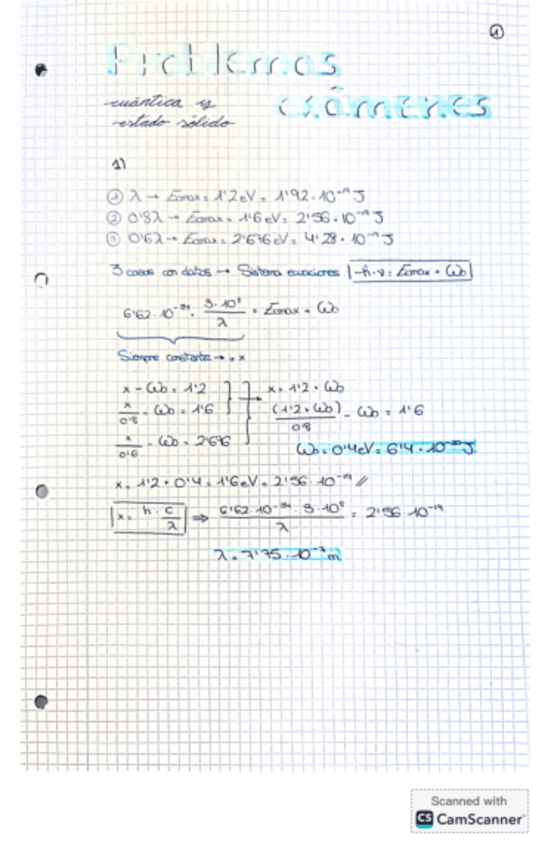 1
Problemas
cuántica y exámenes
estado sólido
1)
① λ → Ecmax = 1'2 eV = 1'92 · 10⁻¹⁹ J
② 0'8λ → Ecmax = 1'6 eV = 2'56 · 10⁻¹⁹ J
③ 0'6λ → Ecmax = 2'676 eV = 4'28 · 10⁻¹⁹ J
3 casos con datos → Sistema ecuaciones h · ν = Ecmax + ω₀
6'62 · 10⁻³⁴ · 3 · 10⁸ / λ = Ecmax + ω₀
Siempre constante → = x
x - ω₀ = 1'2 x = 1'2 + ω₀
x/0'8 - ω₀ = 1'6 (1'2 + ω₀)/0'8 - ω₀ = 1'6
x/0'6 - ω₀ = 2'676 ω₀ = 0'4 eV = 6'4 · 10⁻²⁰ J
x = 1'2 + 0'4 = 1'6 eV = 2'56 · 10⁻¹⁹ //
x = h · c / λ ⇒ 6'62 · 10⁻³⁴ · 3 · 10⁸ / λ = 2'56 · 10⁻¹⁹
λ = 7'75 · 10⁻⁷ m
Scanned with
CS CamScanner